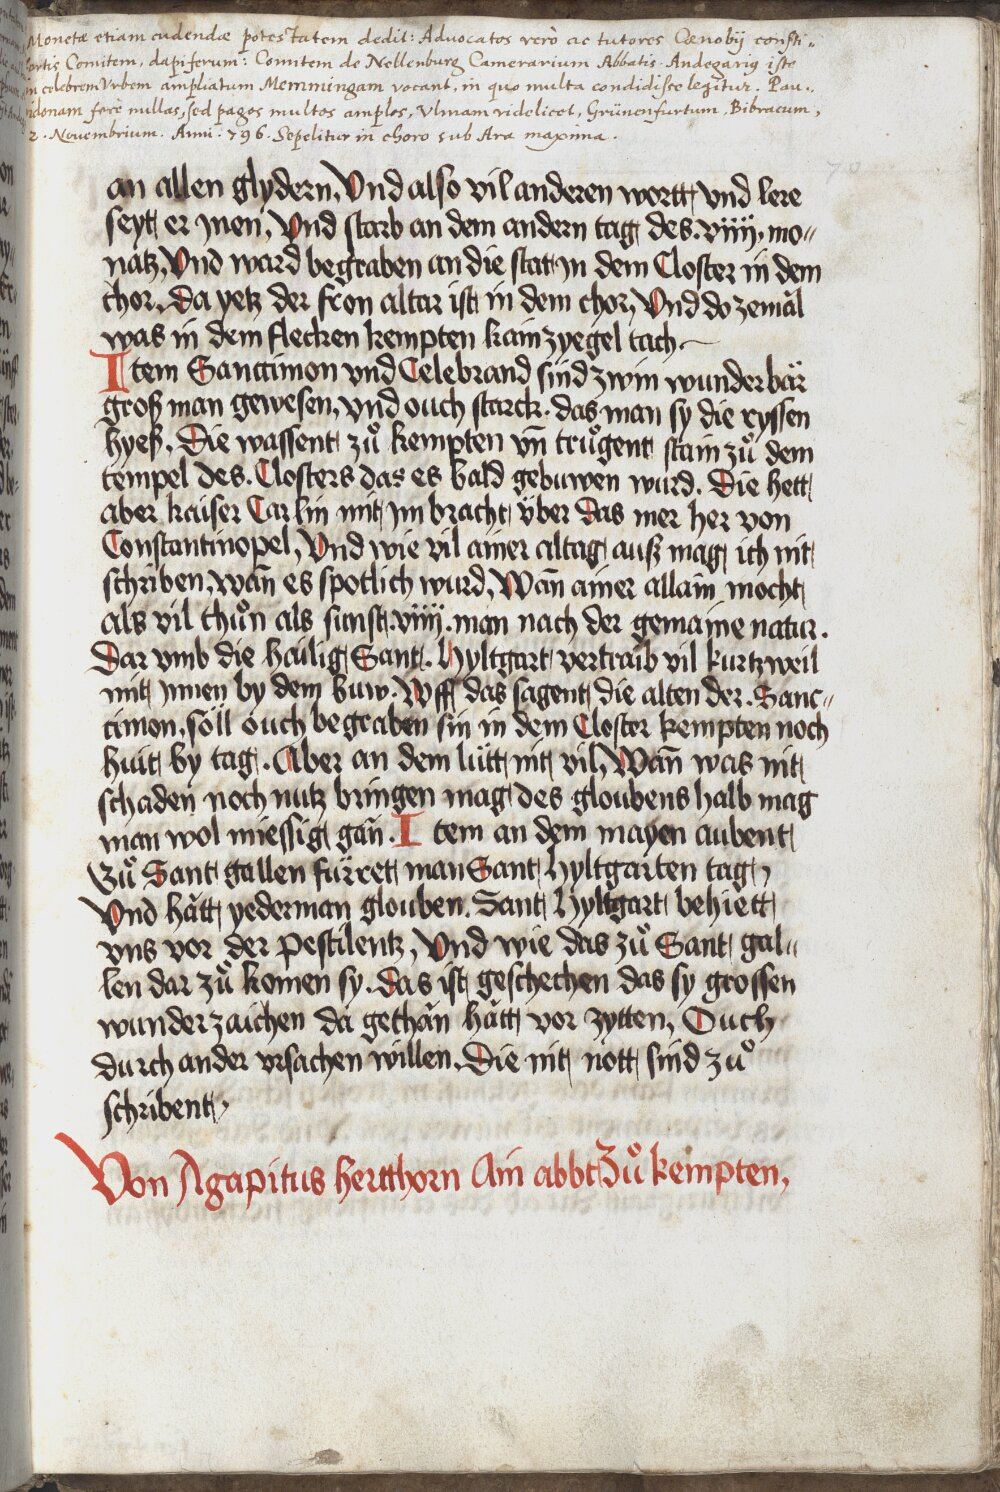 Monetæ etiam cudendæ potestatem dedit: Advocatos verò ac tutores Cœnobij consti„
Comitem, dapiferum: Comitem de Nellenburg Camerarium Abbatis. Andegarig iste
in celebrem Vrbem ampliatum Memmingam vocant, in quo multa condidisse legitur. Pau„
ferè nullas, sed pagos multos amplos, Vlmam videlicet, Grünenfurtum, Bibracum,
2. Novembrium. Anni. 796. Sepelitur in choro sub Ara maxima.
70
an allen glydern, Vnd also vil anderen wortt vnd lere
seyt er jnen, Vnd starb an dem andern tag des. viiij. mo„
natz, Vnd ward begraben an die stat jn dem Closter in dem
chor, Da yetz der fron altar ist in dem chor, Vnd do zemăl
was in dem flecken kempten kain zyegel tach
Item Sanctimon vnd Celebrand sind zwin wunderbăr
groß man gewesen, vnd ouch starck. das man sy die ryssen
hyeß, Die wassent zů kempten vn̄ trůgent stain zů dem
tempel des. Closters das es bald gebuwen wurd. Die hett
aber kaiser Carlin mit jm bracht über das mer her von
Constantinopel, Vnd wie vil ainer altag auß mag ich nit
schriben, wan̄ es spotlich wurd, Wan̄ ainer allain mocht
als vil thůn als sunst. viiij. man nach der gemaine natur.
Dar vmb die hailig Sant. Hyltgart vertraib vil kurtzweil
mit jnnen by dem buw. Vff das sagent die alten der. Sanc„
timon, söll ouch begraben sin in dem Closter kempten noch
huit by tag. Aber an dem lütt nit vil, Wan̄ was nit
schaden noch nutz bringen mag des gloubens halb mag
man wol miessig gan̄. Item an dem mayen aubent
Zů Sant gallen fürret man Sant Hyltgarten tag,
Vnd hătt yederman glouben. Sant Hyltgart behiett
vns vor der pestilentz, Vnd wie das zů Sant gal„
len dar zů komen sy. das ist geschechen das sy grossen
wunderzaichen da gethăn hătt vor zytten, Ouch
durch ander vrsachen willen. Die nit nott sind zů
schribent,
Von Agapitus hertthorn Ain abbt Zů kempten,